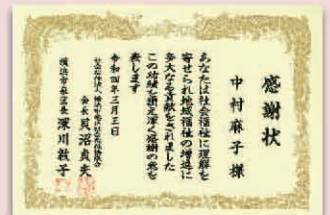 感謝状
中村麻子様
あなたは社会福祉に理解を
寄せられ地域福祉の増進に
多大なる貢献をされました
この功績を讃え深く感謝の意を
表します
令和四年三月三日
会長 貝沼貞夫
横浜市泉区長 深川敦子